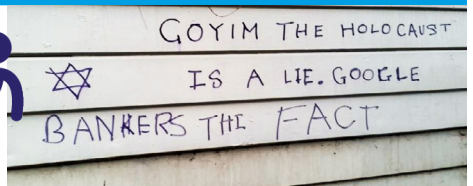 GOYIM THE HOLOCAUST
IS A LIE. GOOGLE
BANKERS THI FACT